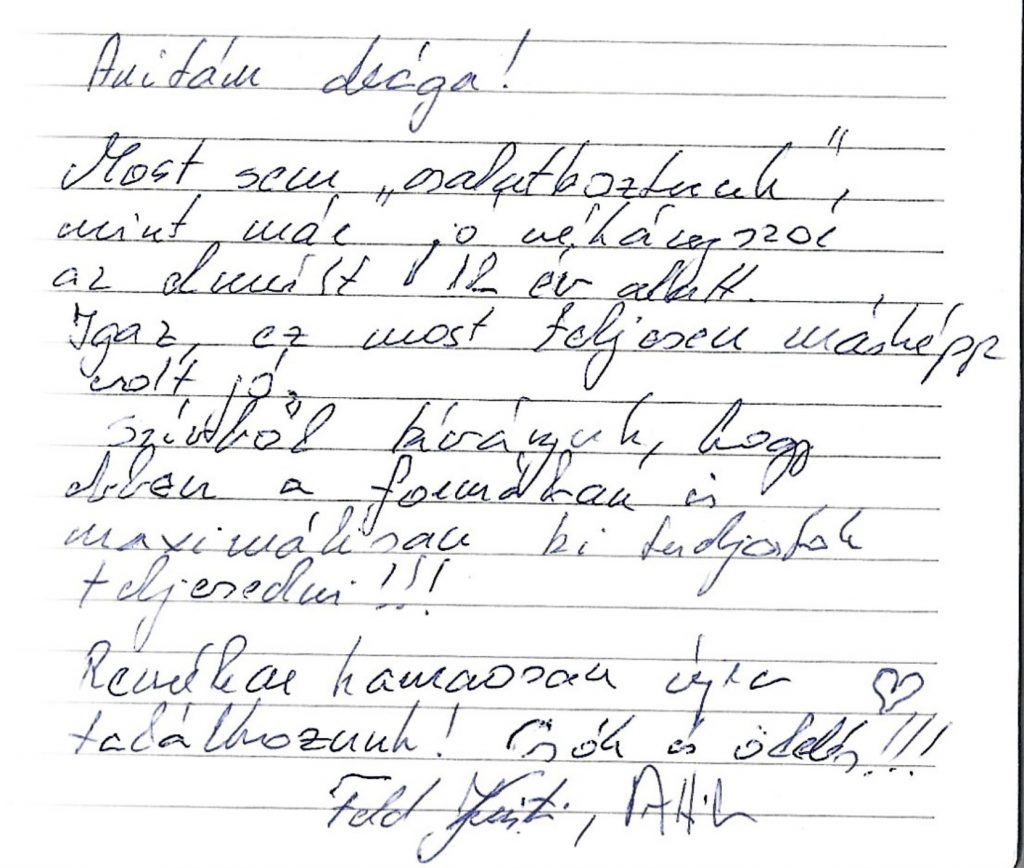 Anitám drága!
Most sem „csalatkoztunk",
mint már jó néhányszor
az elmúlt 12 év alatt.
Igaz, ez most teljesen másképp
volt jó.
Szívből kívánjuk, hogy
ebben a formában is
maximálisan ki tudjatok
teljesedni!!!
Remélem hamarosan újra
találkozunk! Csók és ölelés!!!
Feld Kriszti, Attila